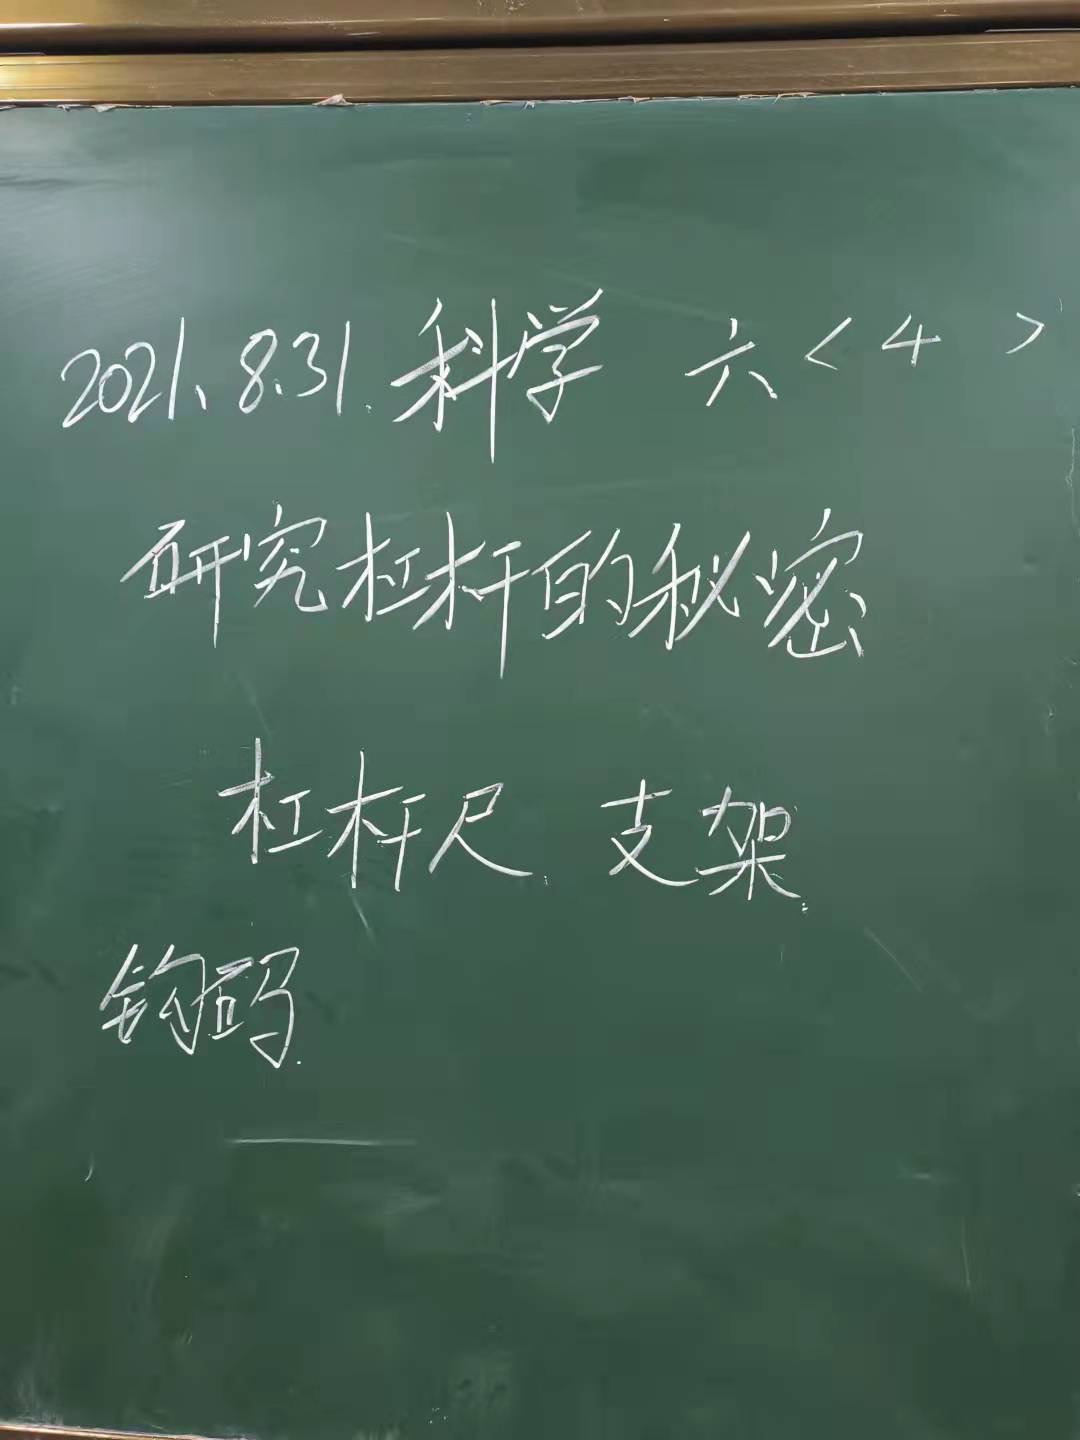 2021.8.31.科学 六<4>
研究杠杆的秘密
杠杆尺、支架
钩码.